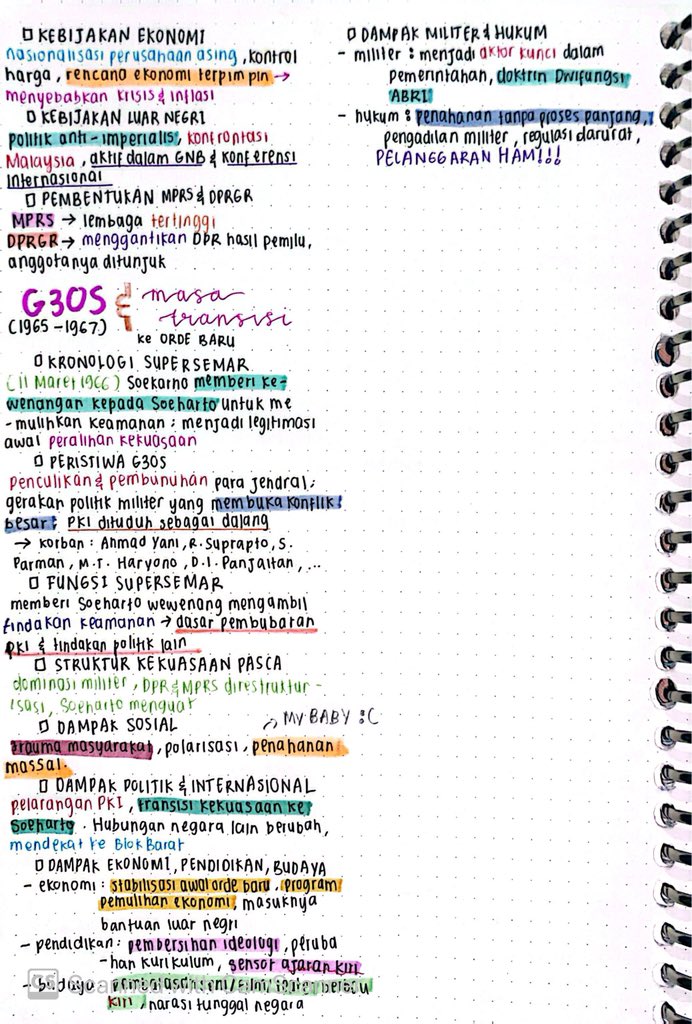 □ KEBIJAKAN EKONOMI
nasionalisasi perusahaan asing, kontrol
harga, rencana ekonomi terpimpin →
menyebabkan krisis & inflasi
□ KEBIJAKAN LUAR NEGRI
politik anti-imperialis, konfrontasi
Malaysia, aktif dalam GNB & konferensi
Internasional
□ PEMBENTUKAN MPRS & DPRGR
MPRS → lembaga tertinggi
DPRGR → menggantikan DPR hasil pemilu,
anggotanya ditunjuk
G30S & masa
transisi
(1965-1967)
ke ORDE BARU
□ KRONOLOGI SUPERSEMAR
(11 Maret 1966) Soekarno memberi ke-
wenangan kepada Soeharto untuk me
-mulihkan keamanan : menjadi legitimasi
awal peralihan kekuasaan
□ PERISTIWA G30S
penculikan & pembunuhan para jendral;
gerakan politik militer yang membuka konflik
besar; PKI dituduh sebagai dalang
→ korban : Ahmad Yani, R. Suprapto, S.
Parman, M.T. Haryono, D.I. Panjaitan, ...
□ FUNGSI SUPERSEMAR
memberi Soeharto wewenang mengambil
tindakan keamanan → dasar pembubaran
PKI & tindakan politik lain
□ STRUKTUR KEKUASAAN PASCA
dominasi militer, DPR & MPRS direstruktur-
isasi, Soeharto menguat
□ DAMPAK SOSIAL
MY BABY :C
trauma masyarakat, polarisasi, penahanan
massal.
□ DAMPAK POLITIK & INTERNASIONAL
pelarangan PKI, transisi kekuasaan ke
Soeharto. Hubungan negara lain berubah,
mendekat ke Blok Barat
□ DAMPAK EKONOMI, PENDIDIKAN, BUDAYA
- ekonomi : stabilisasi awal orde baru, program
pemulihan ekonomi, masuknya
bantuan luar negri
- pendidikan : pembersihan ideologi, peruba
-han kurikulum, sensor ajaran kiri
- budaya : pembatasan seni/film/teater berbau
kiri, narasi tunggal negara
□ DAMPAK MILITER & HUKUM
- militer : menjadi aktor kunci dalam
pemerintahan, doktrin Dwifungsi
ABRI
- hukum : penahanan tanpa proses panjang,
pengadilan militer, regulasi darurat,
PELANGGARAN HAM!!!
CS Scanned with CamScanner